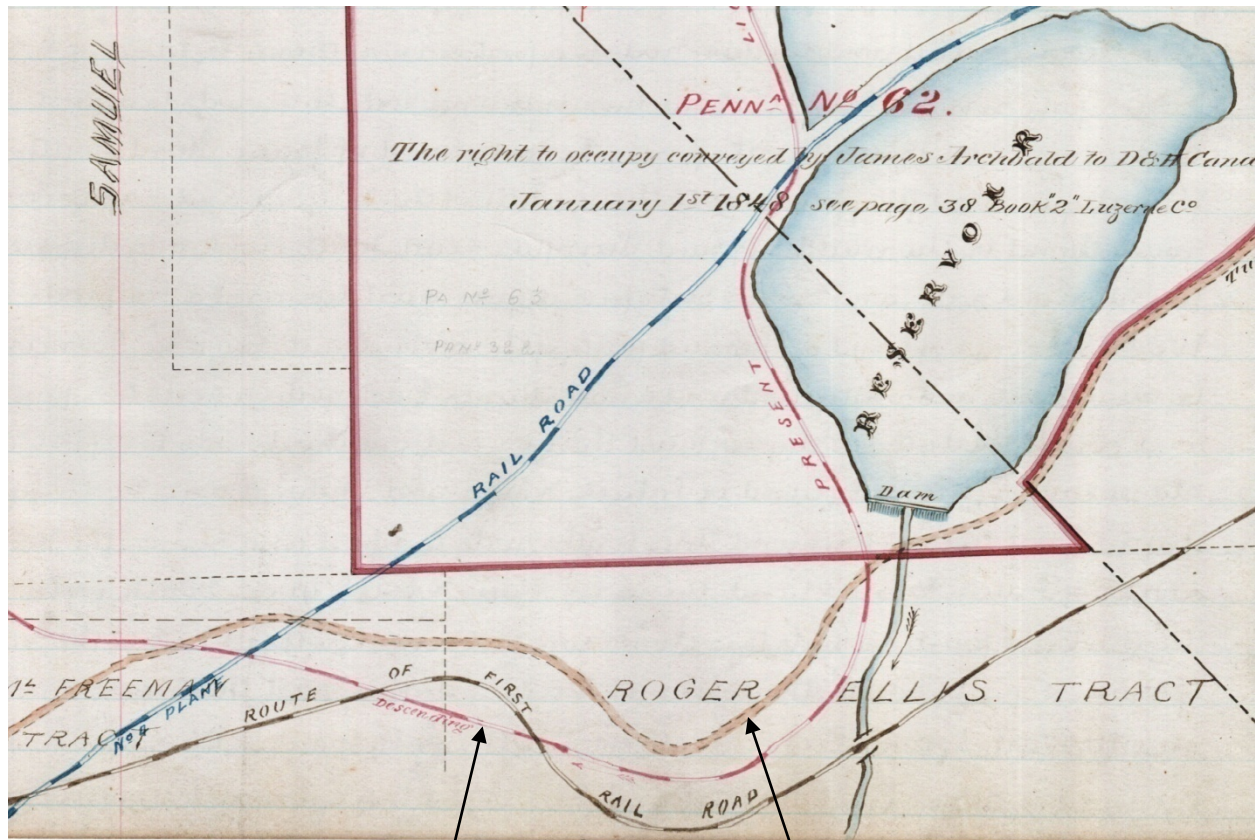 SAMUEL
PENNA No 62.
The right to occupy conveyed by James Archbald to D&H Cana
January 1st 1848 see page 38 Book "2" Luzerne Co
RESERVOIR
PA No 63
RAIL ROAD
PRESENT
Dam
FREEMAN
TRACT
No 4 PLANE
ROUTE OF FIRST RAIL ROAD
Descending
ROGER ELLIS TRACT